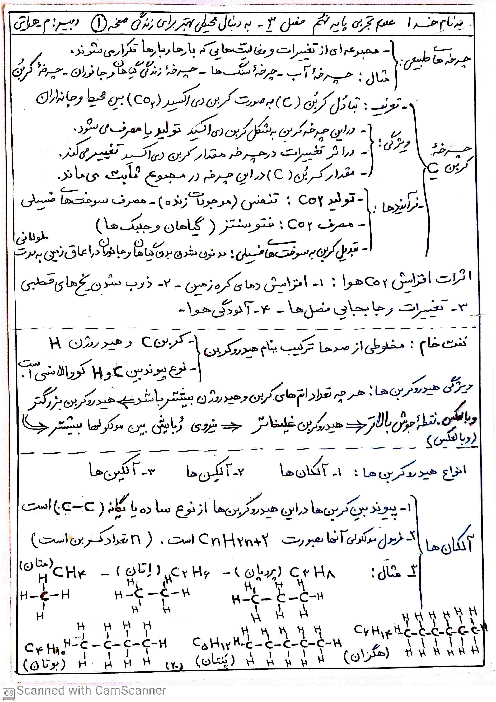 به نام خدا علوم تجربی پایه نهم فصل ۳- به دنبال محیطی بهتر برای زندگی صفحه ۱ دبیر:
چرخه‌های طبیعی:
- مجموعه‌ای از تغییرات و فعالیت‌هایی که بارها و بارها تکرار می‌شوند.
- مثال: چرخهٔ آب - چرخهٔ سنگ‌ها - چرخهٔ زندگی گیاهان و جانوران - چرخهٔ کربن
چرخهٔ کربن C
- تعریف: تبادل کربن (C) به صورت کربن دی اکسید (CO۲) بین محیط و جانداران
ویژگی:
- در این چرخه کربن به شکل کربن دی اکسید تولید یا مصرف می‌شود.
- در اثر تغییرات در چرخه مقدار کربن دی اکسید تغییر می‌کند.
- مقدار کربن (C) در این چرخه در مجموع ثابت می‌ماند.
فرآیندها:
- تولید CO۲: تنفس (موجودات زنده) - مصرف سوخت‌های فسیلی
- مصرف CO۲: فتوسنتز (گیاهان و جلبک‌ها)
- تبدیل کربن به سوخت‌های فسیلی: مدفون شدن بدن گیاهان و جانوران در اعماق زمین به مدت طولانی
اثرات افزایش CO۲ هوا: ۱- افزایش دمای کره زمین - ۲- ذوب شدن یخ‌های قطبی
۳- تغییرات و جابجایی فصل‌ها - ۴- آلودگی هوا-
نفت خام: مخلوطی از صدها ترکیب بنام هیدروکربن
- کربن C و هیدروژن H
- نوع پیوند بین C و H کووالانسی است.
ویژگی هیدروکربن‌ها: هر چه تعداد اتم‌های کربن و هیدروژن بیشتر باشد ⇐ هیدروکربن بزرگتر
و بالعکس. نقطهٔ جوش بالاتر ⇐ هیدروکربن غلیظ‌تر ⇐ نیروی ربایش بین مولکولها بیشتر ⇐
(و بالعکس)
انواع هیدروکربن‌ها: ۱- آلکان‌ها ۲- آلکین‌ها ۳- آلکین‌ها
آلکان‌ها
۱- پیوند بین کربن‌ها در این هیدروکربن‌ها از نوع ساده یا یگانه (C-C) است
۲- فرمول مولکولی آنها بصورت CnH۲n+۲ است. (n تعداد کربن است)
۳- مثال: C۳H۸ (پروپان) - C۲H۶ (اتان) - CH۴ (متان)
C۶H۱۴ (هگزان) C۵H۱۲ (پنتان) C۴H۱۰ (بوتان)
(۲۰)
Scanned with CamScanner